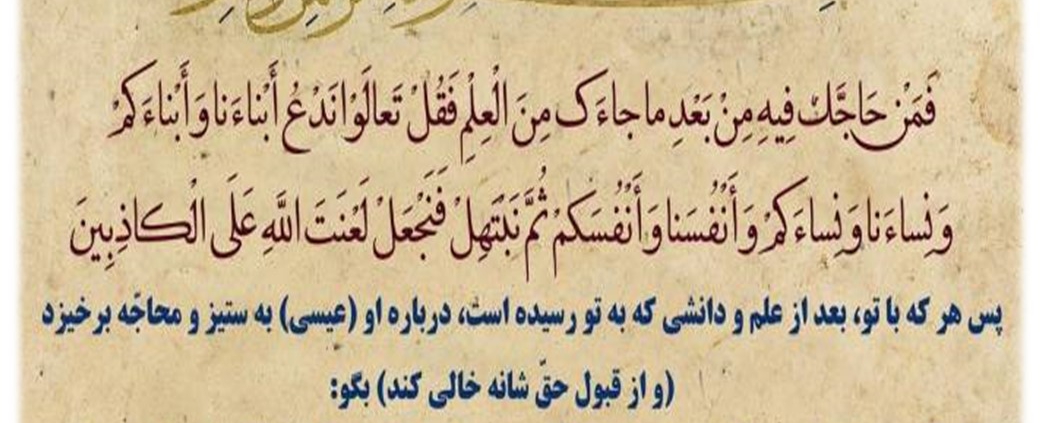 فَمَنْ حَاجَّكَ فِيهِ مِنْ بَعْدِ ما جاءَکَ مِنَ الْعِلْمِ فَقُلْ تَعالَوْا نَدْعُ أَبْناءَنا وَ أَبْناءَكُمْ
وَ نِساءَنا وَ نِساءَكُمْ وَ أَنْفُسَنا وَ أَنْفُسَكُمْ ثُمَّ نَبْتَهِلْ فَنَجْعَلْ لَعْنَتَ اللَّهِ عَلَى الْكاذِبِينَ
پس هر که با تو، بعد از علم و دانشی که به تو رسیده است، درباره او (عیسی) به ستیز و محاجّه برخیزد
(و از قبول حقّ شانه خالی کند) بگو: